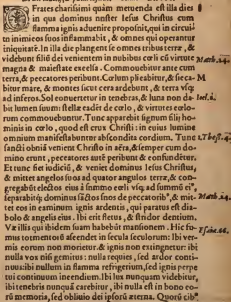 Fratres charissimi quàm metuenda est illa dies
in qua dominus noster Iesus Christus cum
flamma ignis aduenire proposuit, qui in circui-
tu inimicos suos inflammabit, & omnes qui operantur
iniquitatē. In illa die plangent se omnes tribus terræ, &
videbunt filiū dei venientem in nubibus cœli cū virtute
magna & maiestate excelsa. Commouebitur ante eum
terra, & peccatores peribunt. Cœlum plicabitur, & sicca-
bitur mare, & montes sicut cera ardebunt, & terra vsq;
ad inferos. Sol conuertetur in tenebras, & luna non da-
bit lumen suum: stellæ cadēt de cœlo, & virtutes cœlo-
rum commouebuntur. Tunc apparebit signum filij ho-
minis in cœlo, quod est crux Christi: in cuius lumine
omnium manifestabuntur abscondita cordium. Tunc
sancti obuiā venient Christo in aëra, & semper cum do-
mino erunt, peccatores autē peribunt & confundētur.
Et tunc fiet iudiciū, & veniet dominus Iesus Christus,
& mittet angelos suos ad quatuor angulos terræ, & con-
gregabūt electos eius à summo cœli vsq; ad summū ei⁹,
separabitq; dominus sāctos suos de peccatorib⁹, & mit-
tet eos in caminum ignis ardentis, qui paratus est dia-
bolo & angelis eius. Ibi erit fletus, & stridor dentium.
Væ illis qui ibidem suam habebūt mansionem. Hic fu-
mus tormentorū ascendet in secula seculorum: Ibi ver-
mis eorum non morietur, & ignis non extinguetur: ibi
nulla vox nisi gemitus: nulla requies, sed ardor conti-
nuus: ibi nullum in flamma refrigerium, sed ignis perpe-
tui continuum incendium. Ibi lux nunquam videbitur,
ibi tenebris nunquā carebitur, ibi nulla est in bono eo-
rū memoria, sed obliuio dei ipsorū æterna. Quorū cib⁹
Math.24.
M
Ioel.2.
1.Thess.4.
Math.24.
Esaiæ.66.